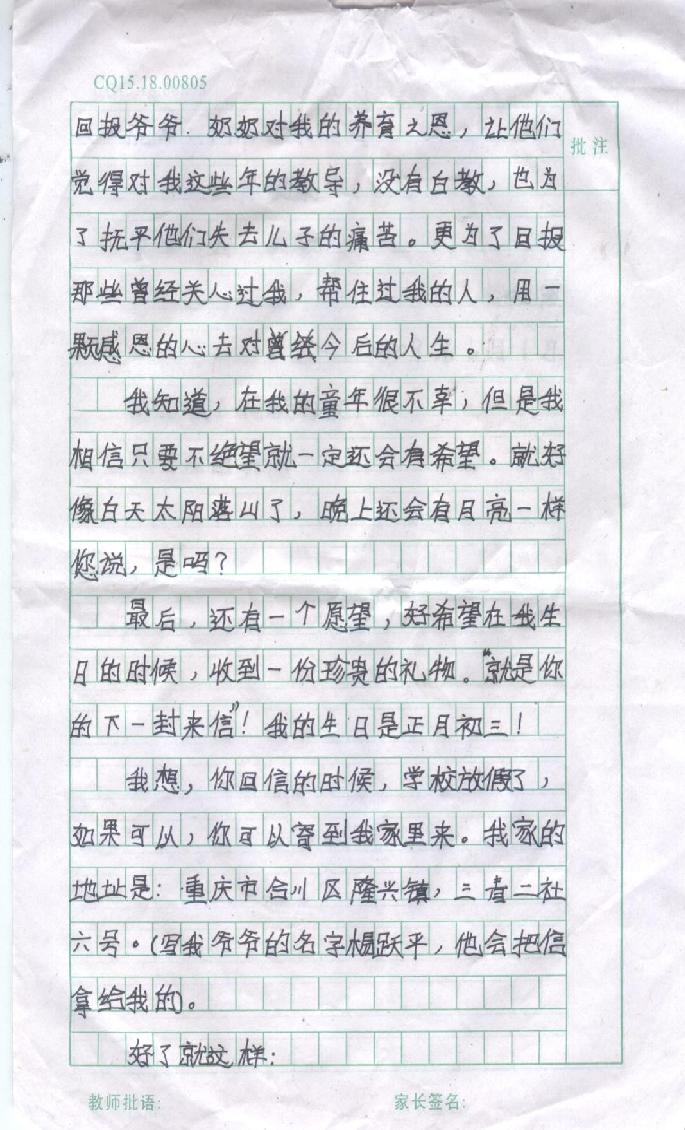 CQ15.18.00805
批注
回报爷爷.奶奶对我的养育之恩，让他们
觉得对我这些年的教导，没有白教，也为
了抚平他们失去儿子的痛苦。更为了回报
那些曾经关心过我，帮住过我的人，用一
颗感恩的心去对曾经今后的人生。
我知道，在我的童年很不幸，但是我
相信只要不绝望就一定还会有希望。就好
像白天太阳落山了，晚上还会有月亮一样
您说，是吗？
最后，还有一个愿望，好希望在我生
日的时候，收到一份珍贵的礼物。“就是你
的下一封来信”！我的生日是正月初三！
我想，你回信的时候，学校放假了，
如果可以，你可以寄到我家里来。我家的
地址是：重庆市合川区隆兴镇，三青二社
六号。（写我爷爷的名字杨跃平，他会把信
拿给我的）。
好了就这样：
教师批语: 家长签名: